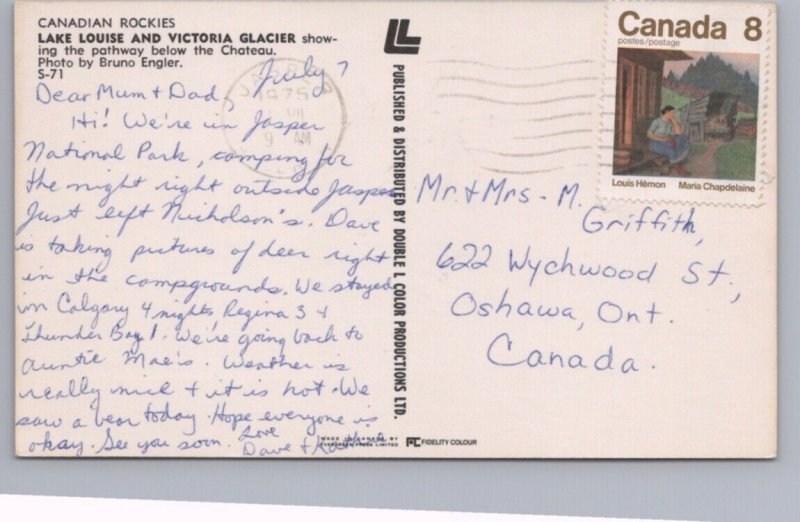 CANADIAN ROCKIES
LAKE LOUISE AND VICTORIA GLACIER show-
ing the pathway below the Chateau.
Photo by Bruno Engler.
S-71
July 7
Dear Mum & Dad,
Hi! We're in Jasper
National Park, camping for
the night right outside Jasper
Just left Nicholson's. Dave
is taking pictures of deer right
in the campgrounds. We stayed
in Calgary 4 nights, Regina 3 &
Thunder Bay 1. We're going back to
auntie Mae's. Weather is
really nice & it is hot. We
saw a bear today. Hope everyone is
okay. See you soon. Love
Dave &
MADE IN CANADA BY
EVERGREEN PRESS LIMITED
FIDELITY COLOUR
LL
PUBLISHED & DISTRIBUTED BY DOUBLE L COLOR PRODUCTIONS LTD.
1975
9 AM
Canada 8
postes/postage
Louis Hémon Maria Chapdelaine
Mr. & Mrs. M.
Griffith,
622 Wychwood St.,
Oshawa, Ont.
Canada.